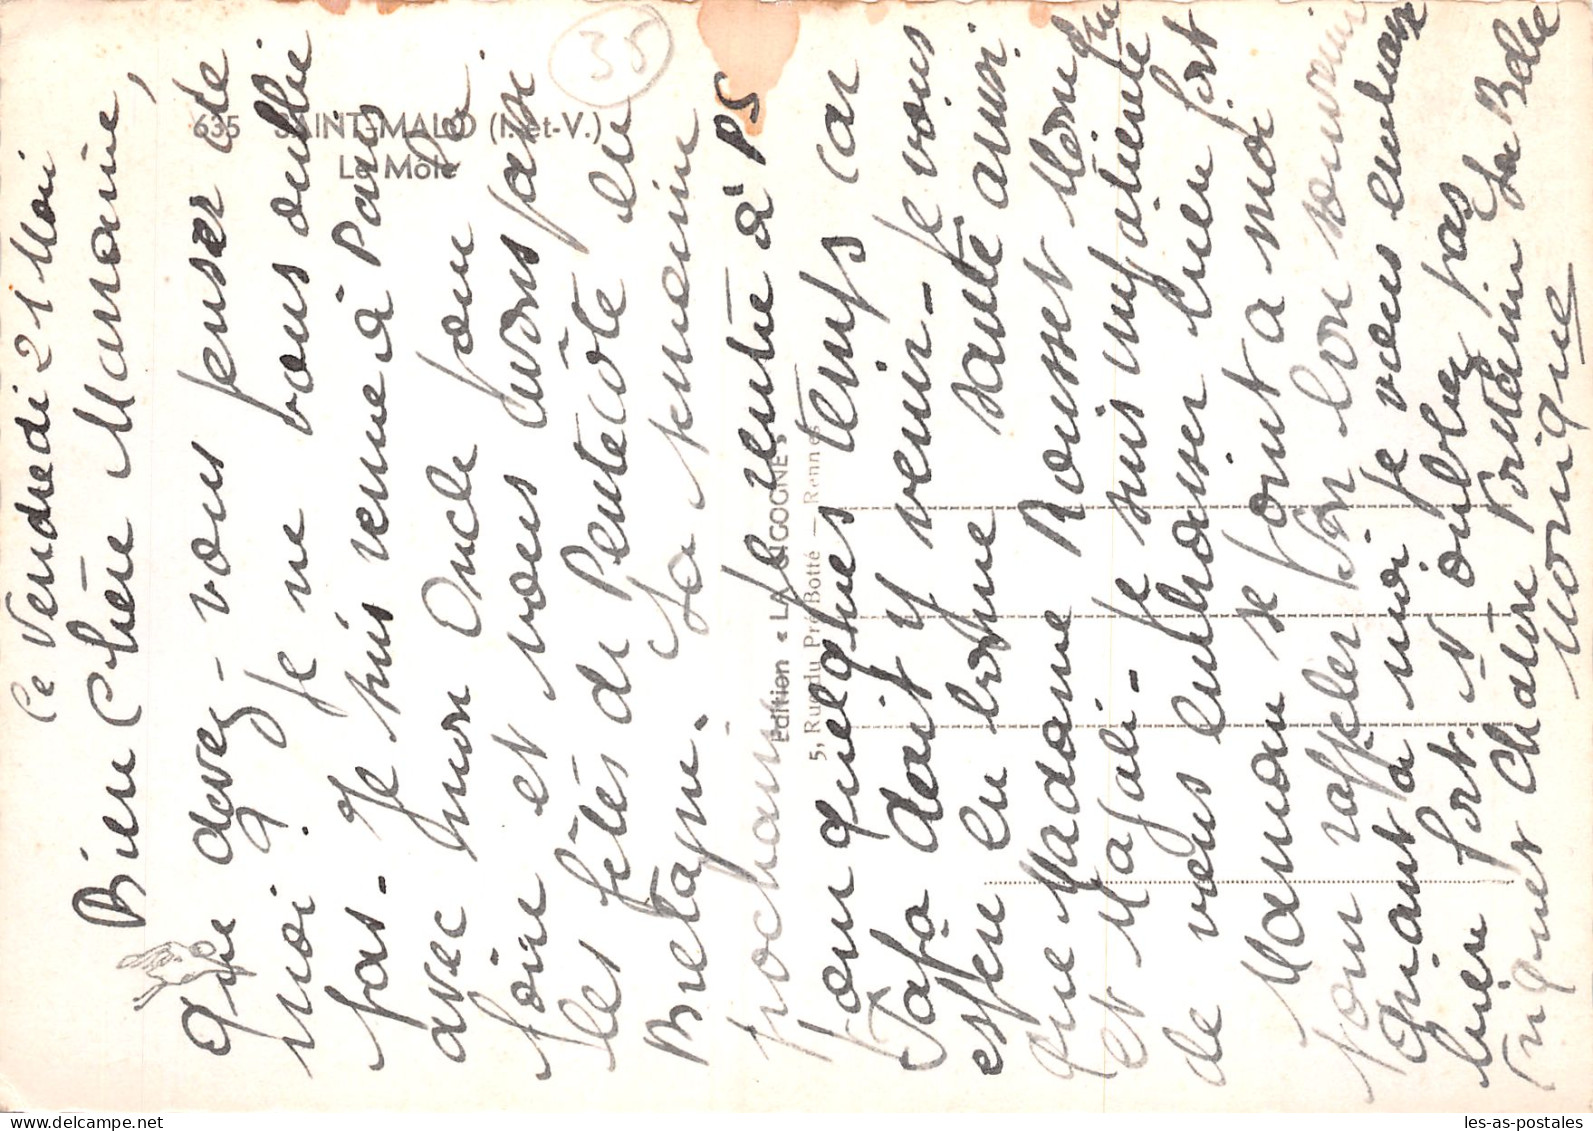 35
635 SAINT-MALO (I.-et-V.)
Le Môle
Édition « LA CIGOGNE »
5, Rue du Pré-Botté — Rennes
Ce Vendredi 21 Mai
Bien Chère Marraine,
Que devez-vous penser de
moi? Je ne vous oublie
pas. Je suis venue à Paris
avec mon Oncle pour la
foire et nous avons passé
les fêtes de Pentecôte en
Bretagne. La semaine
prochaine je rentre à PS
pour quelques temps car
Papa doit y venir. Je vous
espère en bonne santé ainsi
que Madame Rousset Mémé
et Magali. Je suis impatiente
de venir embrasser bien fort
Maman se joint à moi
pour rappeler son bon souvenir
Quant à moi je vous embrasse
bien fort. N'oubliez pas
Monique
les-as-postales